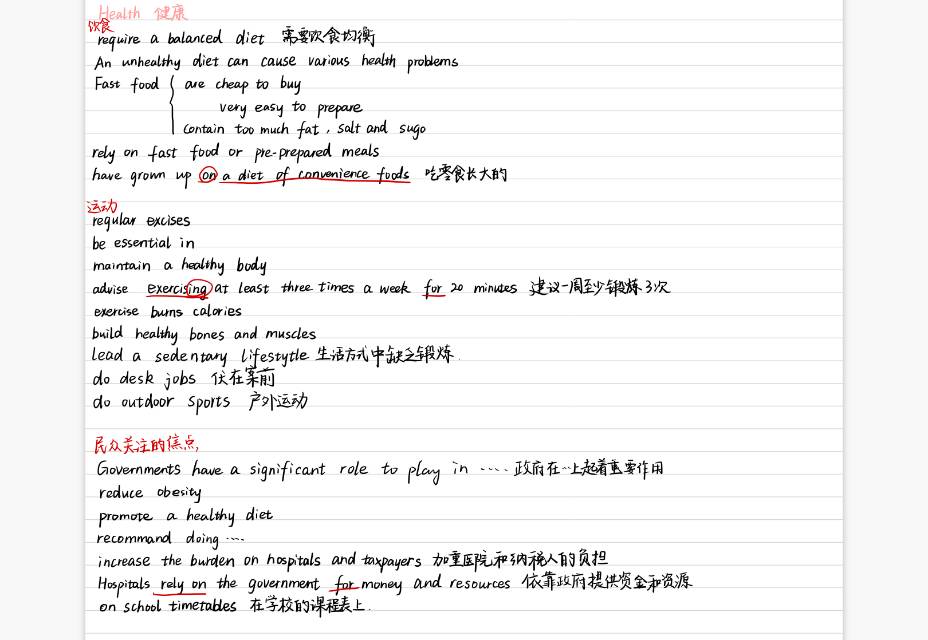 Health 健康
饮食
require a balanced diet 需要饮食均衡
An unhealthy diet can cause various health problems
Fast food { are cheap to buy
very easy to prepare
contain too much fat, salt and sugo
rely on fast food or pre-prepared meals
have grown up on a diet of convenience foods 吃零食长大的
运动
regular excises
be essential in
maintain a healthy body
advise exercising at least three times a week for 20 minutes 建议一周至少锻炼3次
exercise burns calories
build healthy bones and muscles
lead a sedentary lifestytle 生活方式中缺乏锻炼.
do desk jobs 伏在案前
do outdoor sports 户外运动
民众关注的焦点,
Governments have a significant role to play in ..... 政府在...上起着重要作用
reduce obesity
promote a healthy diet
recommand doing ....
increase the burden on hospitals and taxpayers 加重医院和纳税人的负担
Hospitals rely on the government for money and resources 依靠政府提供资金和资源
on school timetables 在学校的课程表上.